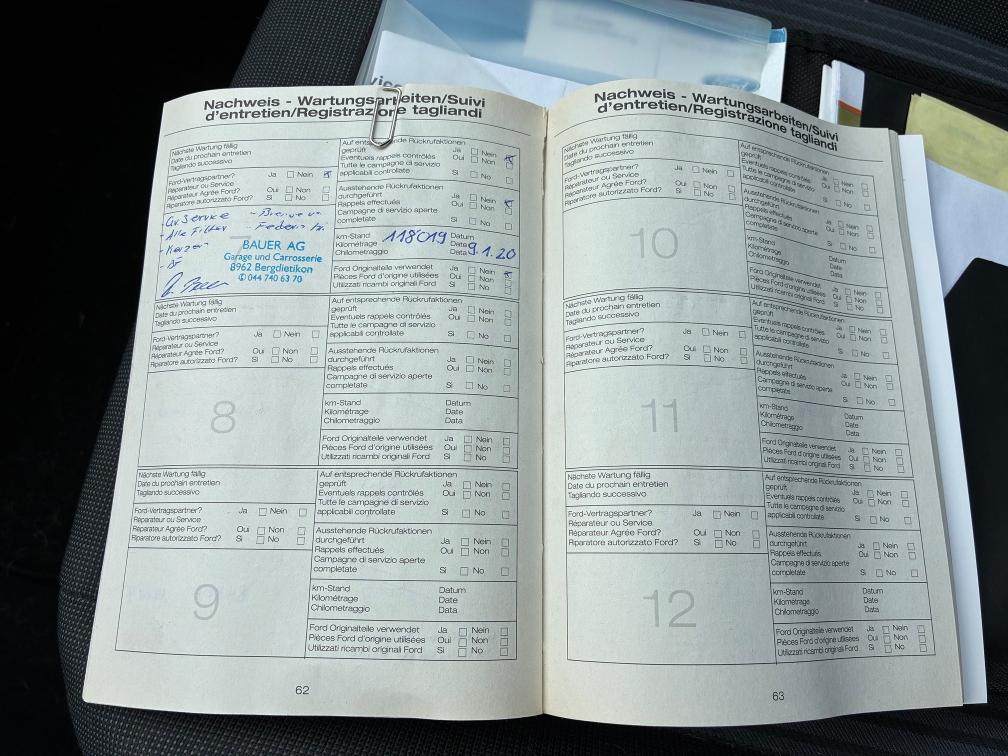 Nachweis - Wartungsarbeiten/Suivi
d'entretien/Registrazione tagliandi
Nächste Wartung fällig
Date du prochain entretien
Tagliando successivo
Ford-Vertragspartner? Ja Nein
Réparateur ou Service
Réparateur Agrée Ford? Oui Non
Riparatore autorizzato Ford? Si No
- Gr Service
- Alle Filter
- Kerzen
BAUER AG
Garage und Carrosserie
8962 Bergdietikon
044 740 63 70
Auf entsprechende Rückrufaktionen
geprüft Ja Nein
Eventuels rappels contrôlés Oui Non
Tutte le campagne di servizio
applicabili controllate Si No
Ausstehende Rückrufaktionen
durchgeführt Ja Nein
Rappels effectués Oui Non
Campagne di servizio aperte
completate Si No
km-Stand 118019 Datum
Kilométrage Date
Chilometraggio Data 9.1.20
Ford Originalteile verwendet Ja Nein
Pièces Ford d'origine utilisées Oui Non
Utilizzati ricambi originali Ford Si No
Nächste Wartung fällig
Date du prochain entretien
Tagliando successivo
Ford-Vertragspartner? Ja Nein
Réparateur ou Service
Réparateur Agrée Ford? Oui Non
Riparatore autorizzato Ford? Si No
8
Auf entsprechende Rückrufaktionen
geprüft Ja Nein
Eventuels rappels contrôlés Oui Non
Tutte le campagne di servizio
applicabili controllate Si No
Ausstehende Rückrufaktionen
durchgeführt Ja Nein
Rappels effectués Oui Non
Campagne di servizio aperte
completate Si No
km-Stand Datum
Kilométrage Date
Chilometraggio Data
Ford Originalteile verwendet Ja Nein
Pièces Ford d'origine utilisées Oui Non
Utilizzati ricambi originali Ford Si No
Nächste Wartung fällig
Date du prochain entretien
Tagliando successivo
Ford-Vertragspartner? Ja Nein
Réparateur ou Service
Réparateur Agrée Ford? Oui Non
Riparatore autorizzato Ford? Si No
9
Auf entsprechende Rückrufaktionen
geprüft Ja Nein
Eventuels rappels contrôlés Oui Non
Tutte le campagne di servizio
applicabili controllate Si No
Ausstehende Rückrufaktionen
durchgeführt Ja Nein
Rappels effectués Oui Non
Campagne di servizio aperte
completate Si No
km-Stand Datum
Kilométrage Date
Chilometraggio Data
Ford Originalteile verwendet Ja Nein
Pièces Ford d'origine utilisées Oui Non
Utilizzati ricambi originali Ford Si No
62
Nachweis - Wartungsarbeiten/Suivi
d'entretien/Registrazione tagliandi
Nächste Wartung fällig
Date du prochain entretien
Tagliando successivo
Ford-Vertragspartner? Ja Nein
Réparateur ou Service
Réparateur Agrée Ford? Oui Non
Riparatore autorizzato Ford? Si No
10
Auf entsprechende Rückrufaktionen
geprüft Ja Nein
Eventuels rappels contrôlés Oui Non
Tutte le campagne di servizio
applicabili controllate Si No
Ausstehende Rückrufaktionen
durchgeführt Ja Nein
Rappels effectués Oui Non
Campagne di servizio aperte
completate Si No
km-Stand Datum
Kilométrage Date
Chilometraggio Data
Ford Originalteile verwendet Ja Nein
Pièces Ford d'origine utilisées Oui Non
Utilizzati ricambi originali Ford Si No
Nächste Wartung fällig
Date du prochain entretien
Tagliando successivo
Ford-Vertragspartner? Ja Nein
Réparateur ou Service
Réparateur Agrée Ford? Oui Non
Riparatore autorizzato Ford? Si No
11
Auf entsprechende Rückrufaktionen
geprüft Ja Nein
Eventuels rappels contrôlés Oui Non
Tutte le campagne di servizio
applicabili controllate Si No
Ausstehende Rückrufaktionen
durchgeführt Ja Nein
Rappels effectués Oui Non
Campagne di servizio aperte
completate Si No
km-Stand Datum
Kilométrage Date
Chilometraggio Data
Ford Originalteile verwendet Ja Nein
Pièces Ford d'origine utilisées Oui Non
Utilizzati ricambi originali Ford Si No
Nächste Wartung fällig
Date du prochain entretien
Tagliando successivo
Ford-Vertragspartner? Ja Nein
Réparateur ou Service
Réparateur Agrée Ford? Oui Non
Riparatore autorizzato Ford? Si No
12
Auf entsprechende Rückrufaktionen
geprüft Ja Nein
Eventuels rappels contrôlés Oui Non
Tutte le campagne di servizio
applicabili controllate Si No
Ausstehende Rückrufaktionen
durchgeführt Ja Nein
Rappels effectués Oui Non
Campagne di servizio aperte
completate Si No
km-Stand Datum
Kilométrage Date
Chilometraggio Data
Ford Originalteile verwendet Ja Nein
Pièces Ford d'origine utilisées Oui Non
Utilizzati ricambi originali Ford Si No
63